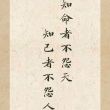 知命者不怨天
知己者不怨人